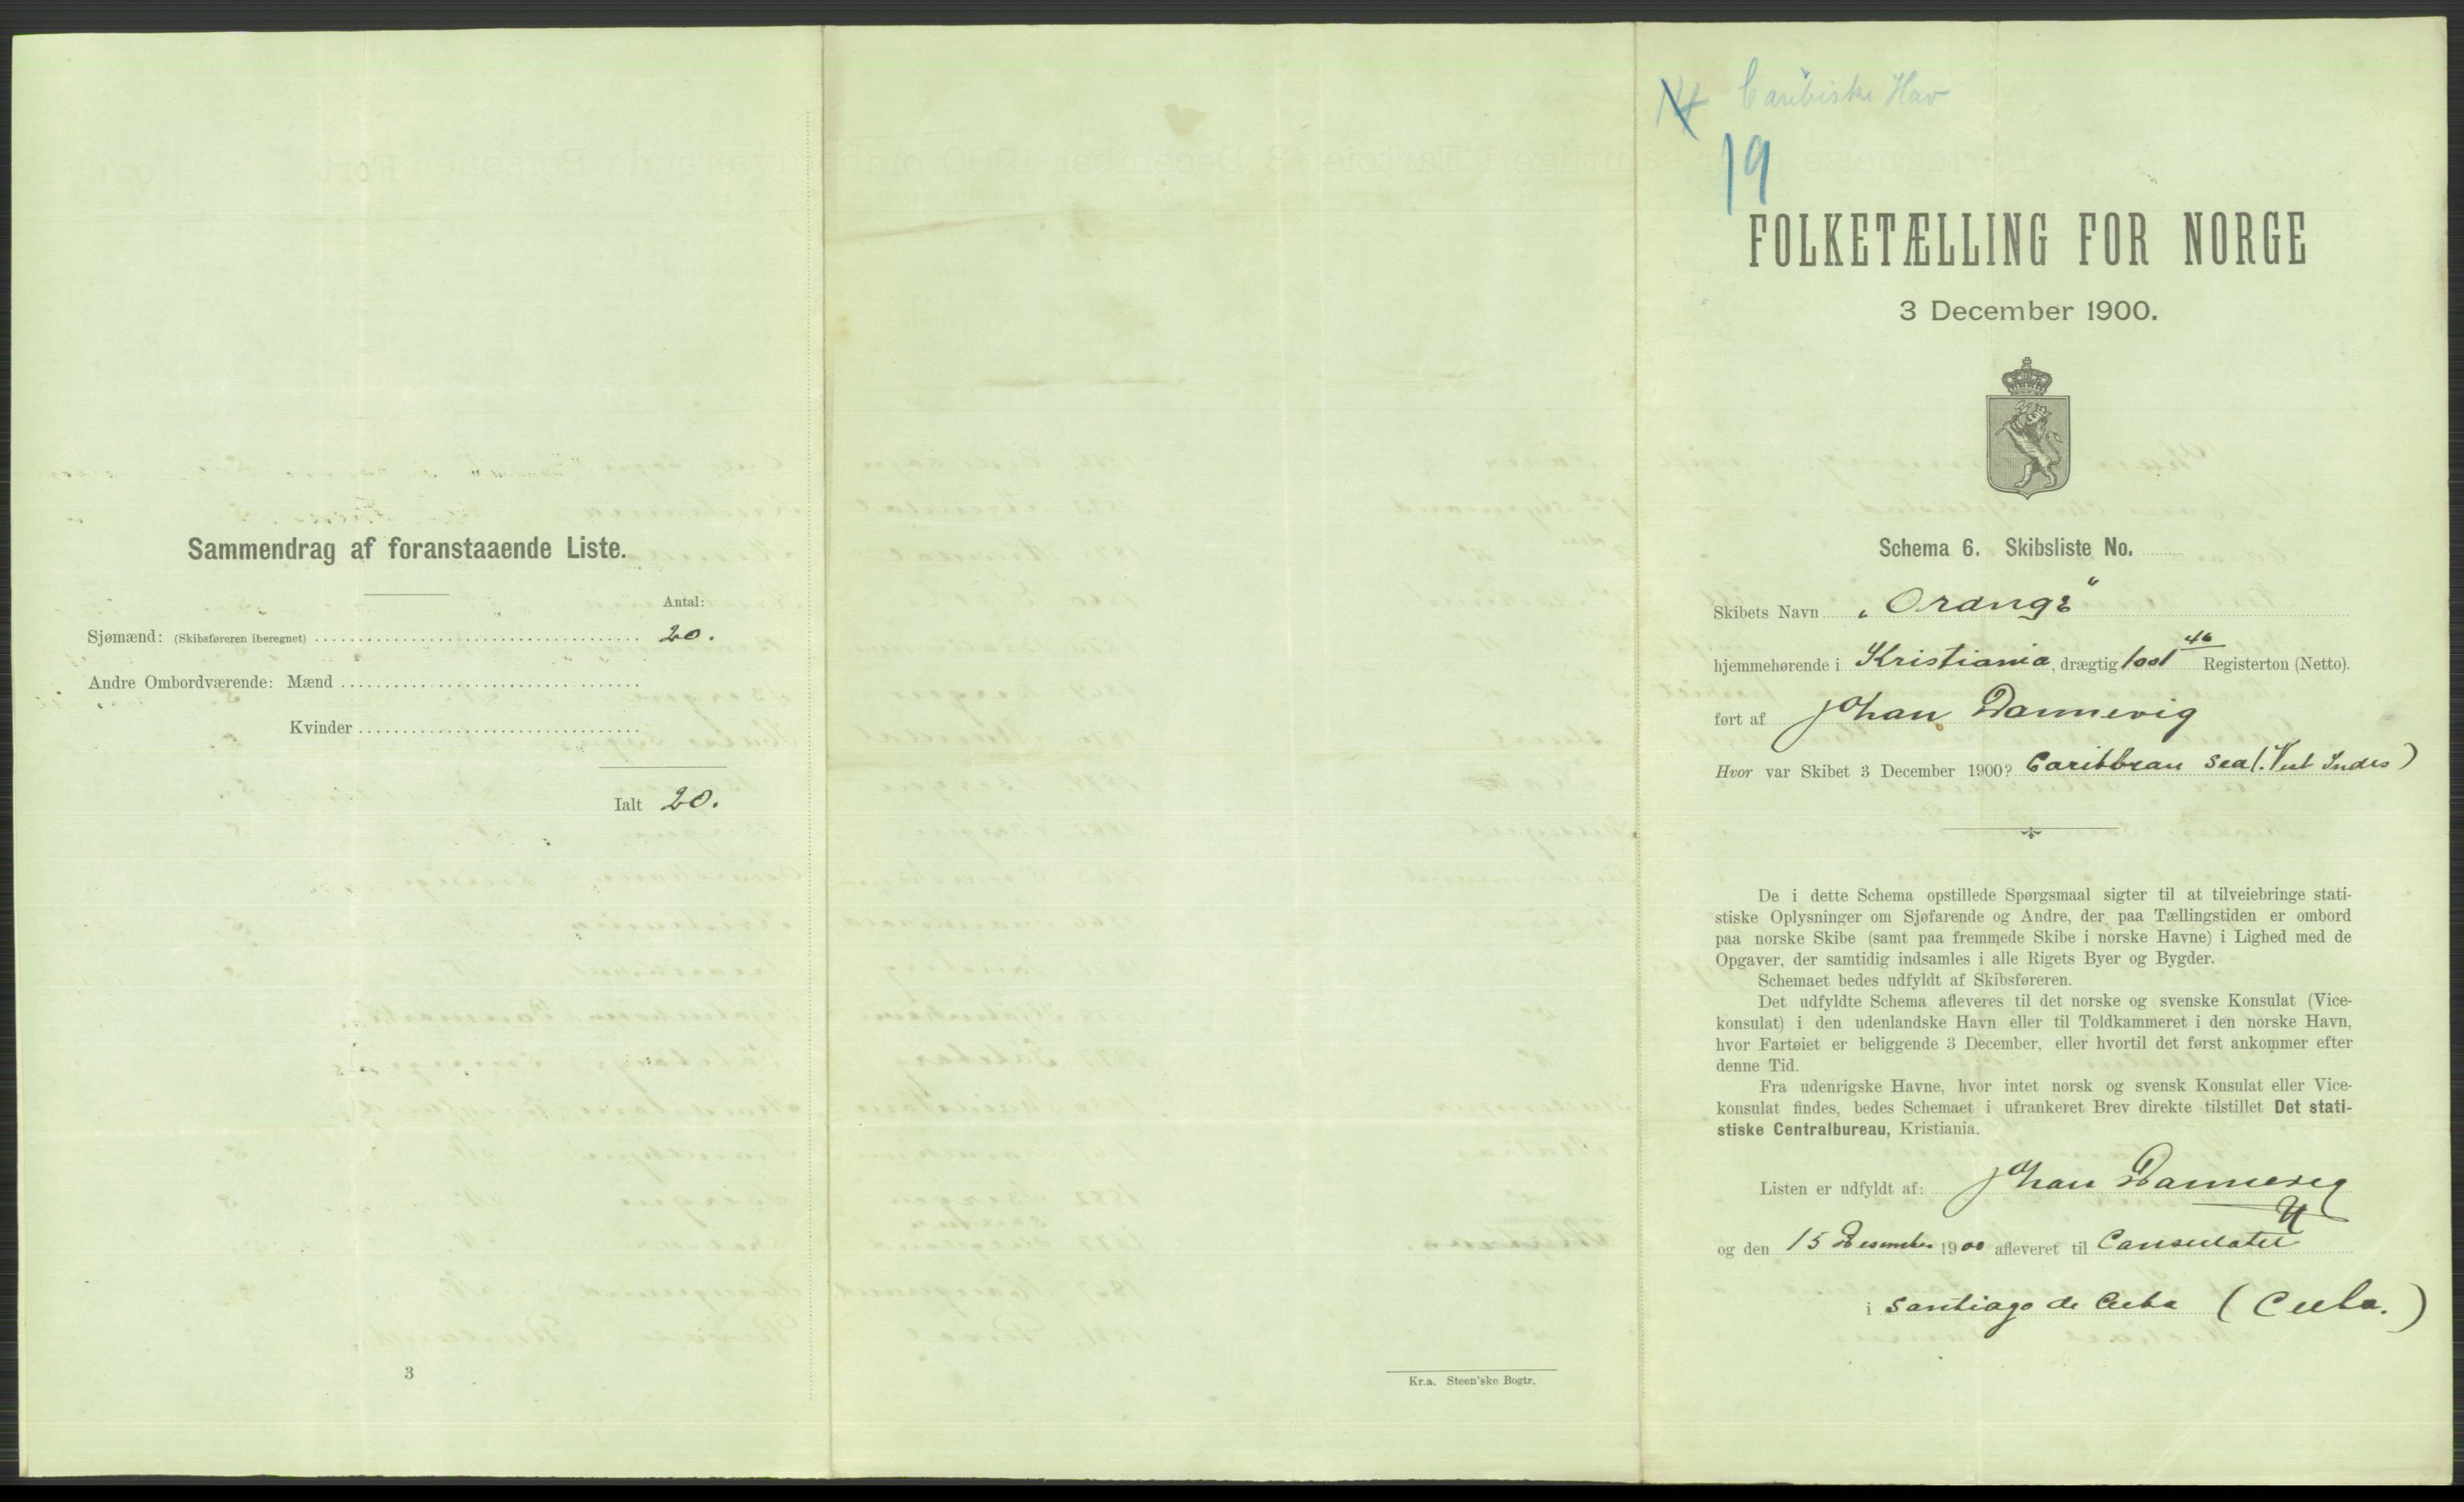 Sammendrag af foranstaaende Liste.
Antal:
Sjømænd: (Skibsføreren iberegnet) 20.
Andre Ombordværende: Mænd
Kvinder
Ialt 20.
3
Kr.a. Steen'ske Bogtr.
Caribiske Hav
19
FOLKETÆLLING FOR NORGE
3 December 1900.
Schema 6. Skibsliste No.
Skibets Navn „Orange"
hjemmehørende i Kristiania, drægtig 1001 46 Registerton (Netto).
ført af Johan Dannevig
Hvor var Skibet 3 December 1900? Caribbean Sea (Vest Indes)
De i dette Schema opstillede Spørgsmaal sigter til at tilveiebringe stati-
stiske Oplysninger om Sjøfarende og Andre, der paa Tællingstiden er ombord
paa norske Skibe (samt paa fremmede Skibe i norske Havne) i Lighed med de
Opgaver, der samtidig indsamles i alle Rigets Byer og Bygder.
Schemaet bedes udfyldt af Skibsføreren.
Det udfyldte Schema afleveres til det norske og svenske Konsulat (Vice-
konsulat) i den udenlandske Havn eller til Toldkammeret i den norske Havn,
hvor Fartøiet er beliggende 3 December, eller hvortil det først ankommer efter
denne Tid.
Fra udenrigske Havne, hvor intet norsk og svensk Konsulat eller Vice-
konsulat findes, bedes Schemaet i ufrankeret Brev direkte tilstillet Det stati-
stiske Centralbureau, Kristiania.
Listen er udfyldt af: Johan Dannevig
og den 15 Desember 1900 afleveret til Consulatet
i Santiago de Cuba (Cuba.)